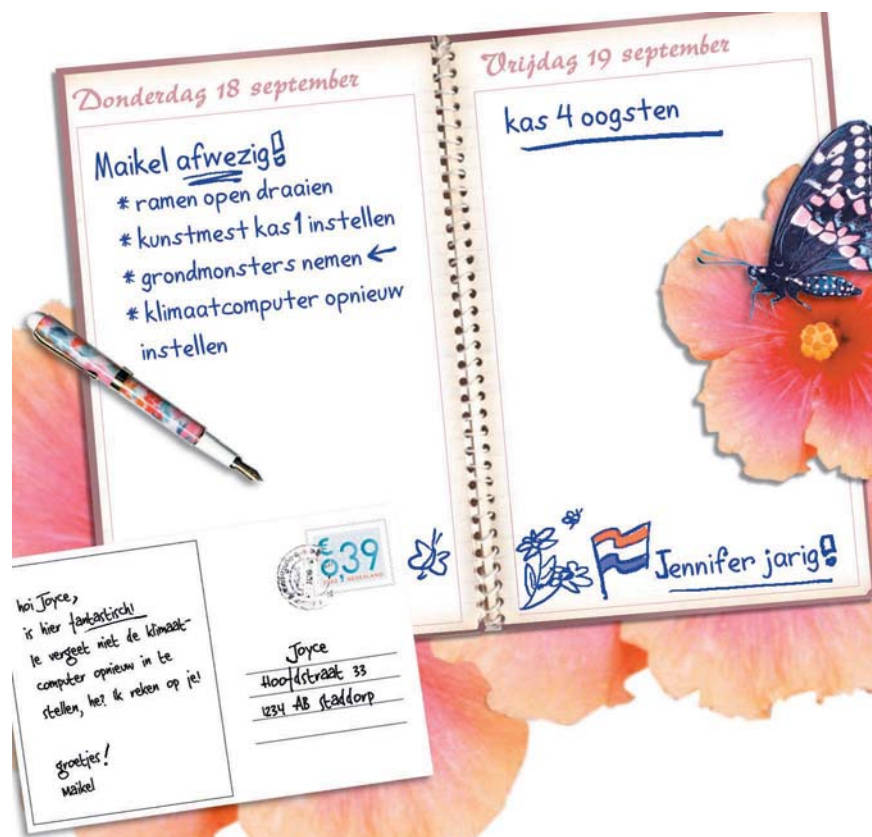 Donderdag 18 september
Maikel afwezig!
* ramen open draaien
* kunstmest kas 1 instellen
* grondmonsters nemen ←
* klimaatcomputer opnieuw
instellen
Vrijdag 19 september
kas 4 oogsten
Jennifer jarig!
hoi Joyce,
is hier fantastisch!
Je vergeet niet de klimaat-
computer opnieuw in te
stellen, he? Ik reken op je!
groetjes!
Maikel
€
0,39
NEDERLAND
Joyce
Hoofdstraat 33
1234 AB Staddorp